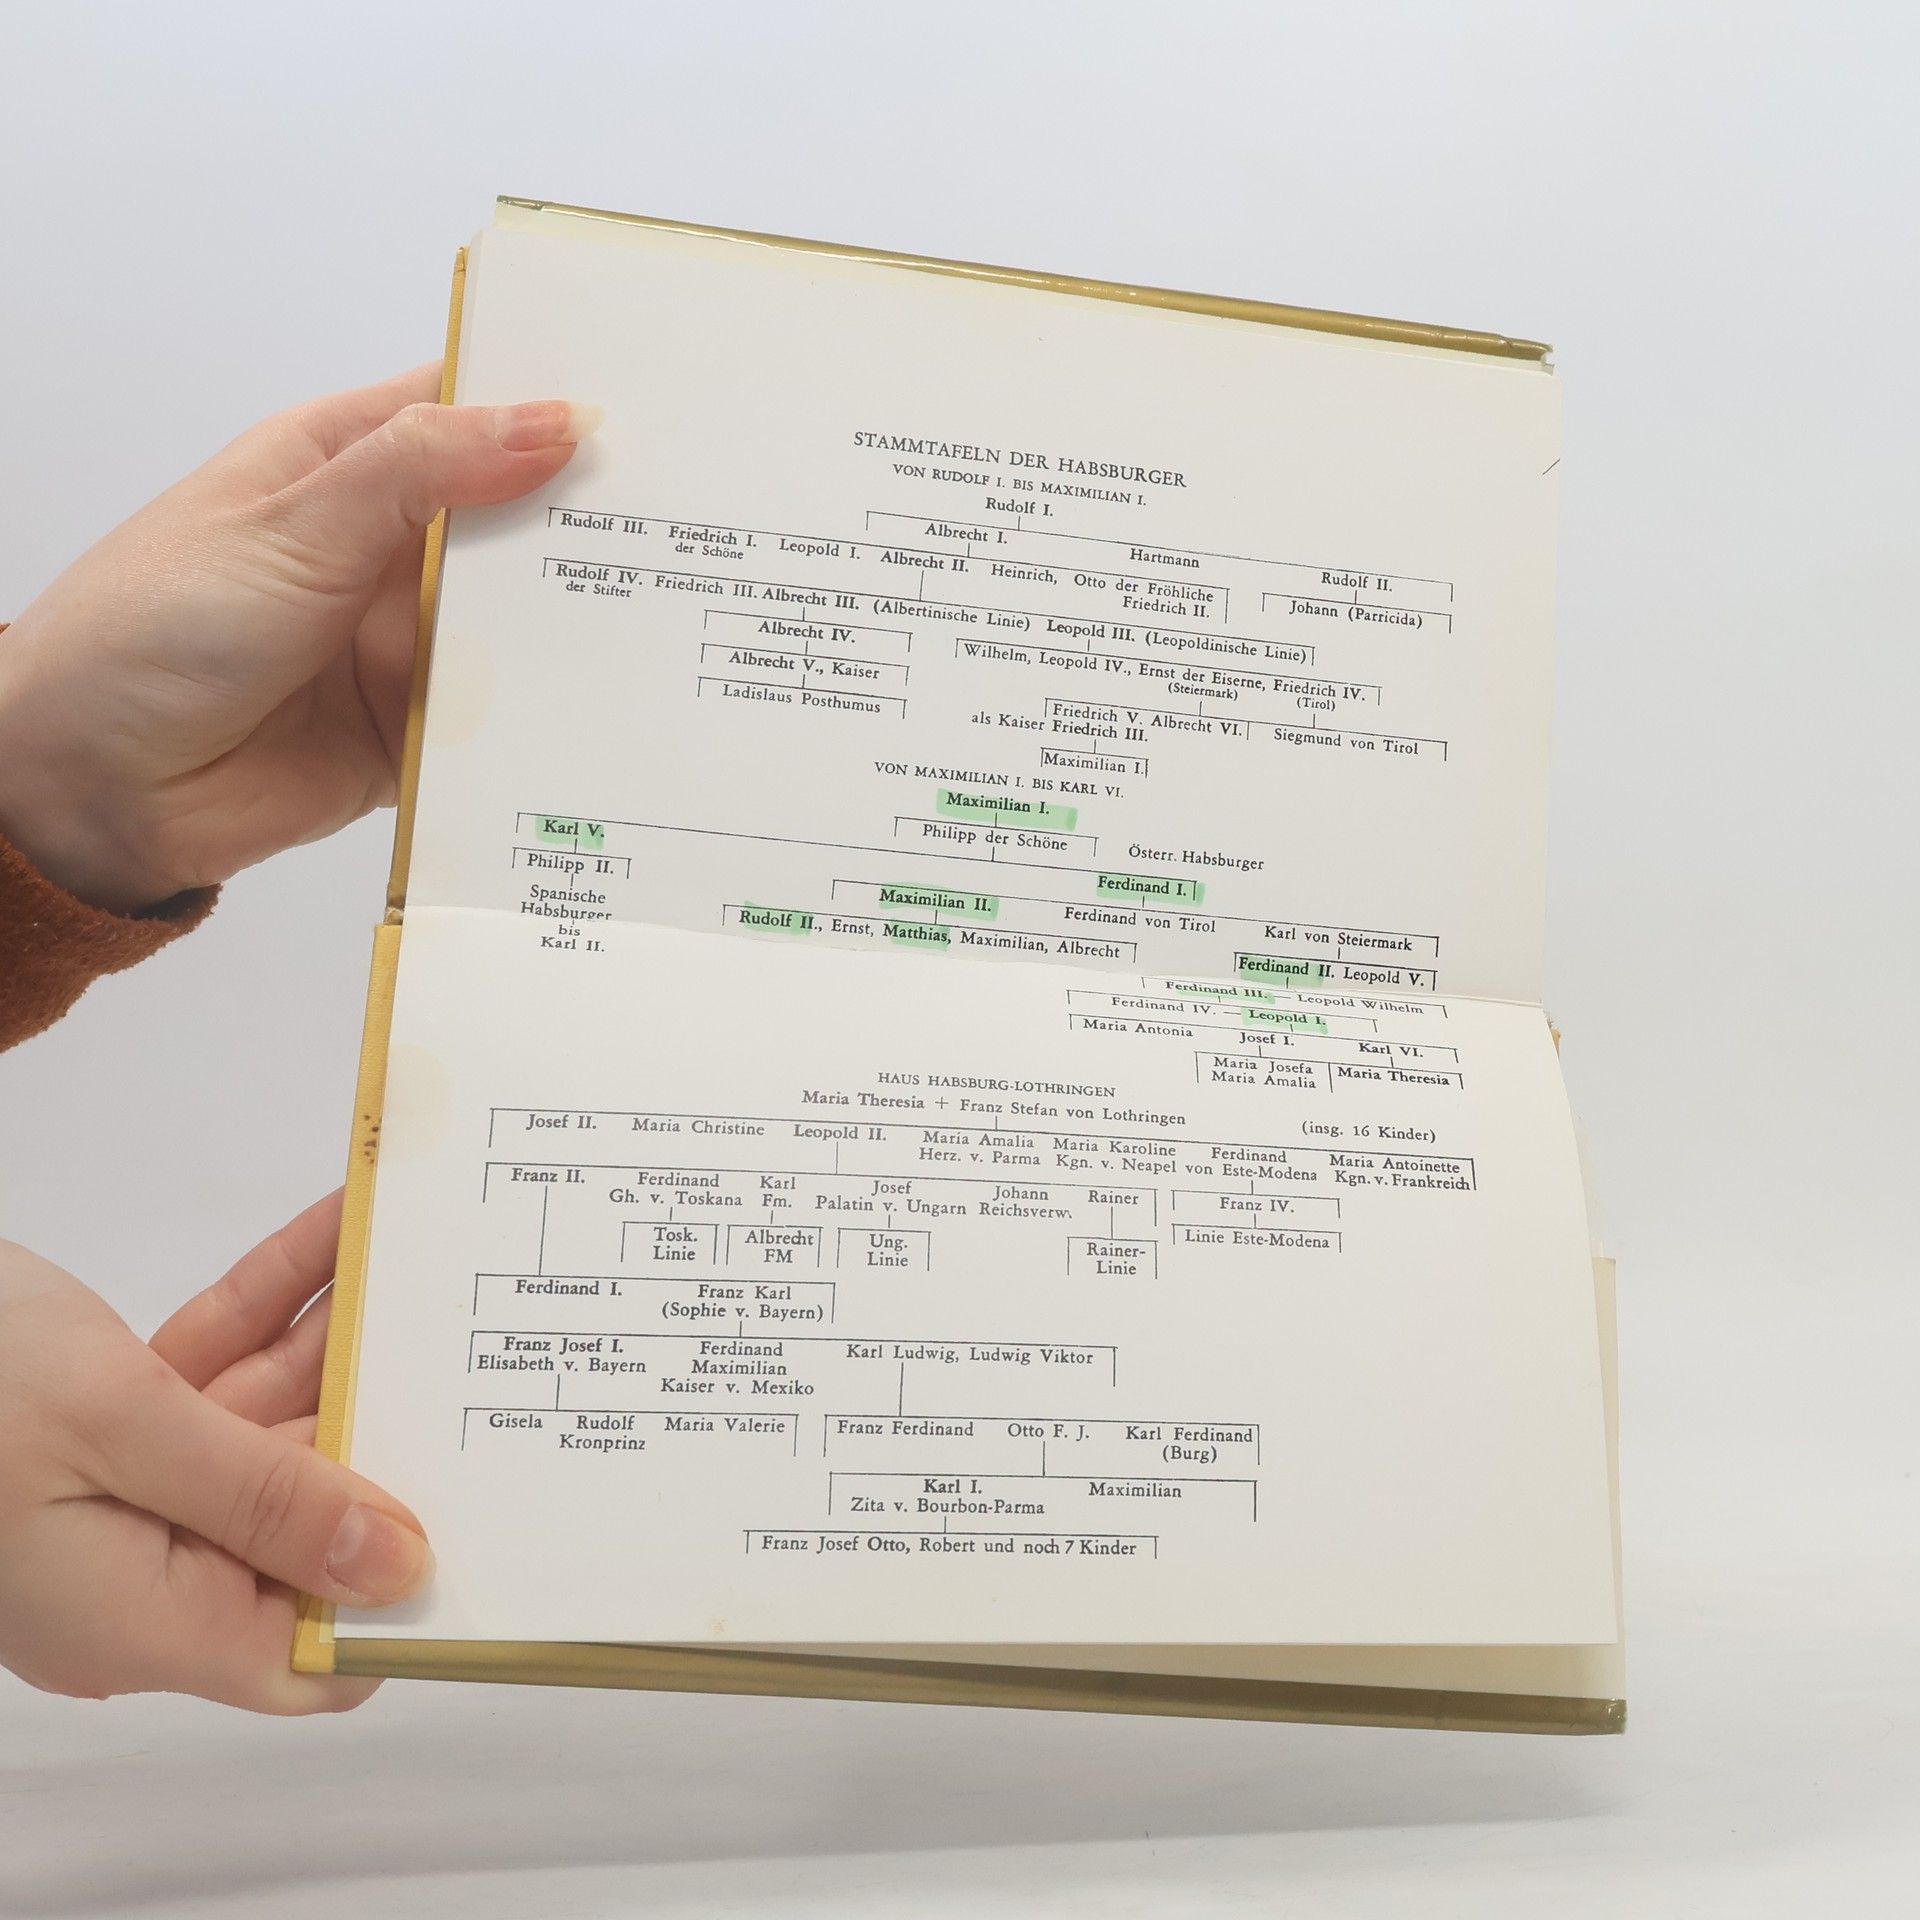 STAMMTAFELN DER HABSBURGER
VON RUDOLF I. BIS MAXIMILIAN I.
Rudolf I.
Albrecht I. Hartmann Rudolf II.
Rudolf III. Friedrich I. Leopold I. Albrecht II. Heinrich, Otto der Fröhliche Johann (Parricida)
der Schöne Friedrich II.
Rudolf IV. Friedrich III. Albrecht III. (Albertinische Linie) Leopold III. (Leopoldinische Linie)
der Stifter
Albrecht IV. Wilhelm, Leopold IV., Ernst der Eiserne, Friedrich IV.
(Steiermark) (Tirol)
Albrecht V., Kaiser
Ladislaus Posthumus Friedrich V. Albrecht VI. Siegmund von Tirol
als Kaiser Friedrich III.
Maximilian I.
VON MAXIMILIAN I. BIS KARL VI.
Maximilian I.
Philipp der Schöne Österr. Habsburger
Karl V. Ferdinand I.
Philipp II. Maximilian II. Ferdinand von Tirol Karl von Steiermark
Spanische
Habsburger
bis
Karl II.
Rudolf II., Ernst, Matthias, Maximilian, Albrecht Ferdinand II. Leopold V.
Ferdinand III. — Leopold Wilhelm
Ferdinand IV. — Leopold I.
Maria Antonia Josef I. Karl VI.
Maria Josefa Maria Theresia
Maria Amalia
HAUS HABSBURG-LOTHRINGEN
Maria Theresia + Franz Stefan von Lothringen (insg. 16 Kinder)
Josef II. Maria Christine Leopold II. Maria Amalia Maria Karoline Ferdinand Maria Antoinette
Herz. v. Parma Kgn. v. Neapel von Este-Modena Kgn. v. Frankreich
Franz II. Ferdinand Karl Josef Johann Rainer Franz IV.
Gh. v. Toskana Fm. Palatin v. Ungarn Reichsverw.
Tosk. Albrecht Ung. Rainer- Linie Este-Modena
Linie FM Linie Linie
Ferdinand I. Franz Karl
(Sophie v. Bayern)
Franz Josef I. Ferdinand Karl Ludwig, Ludwig Viktor
Elisabeth v. Bayern Maximilian
Kaiser v. Mexiko
Gisela Rudolf Maria Valerie Franz Ferdinand Otto F. J. Karl Ferdinand
Kronprinz (Burg)
Karl I. Maximilian
Zita v. Bourbon-Parma
Franz Josef Otto, Robert und noch 7 Kinder